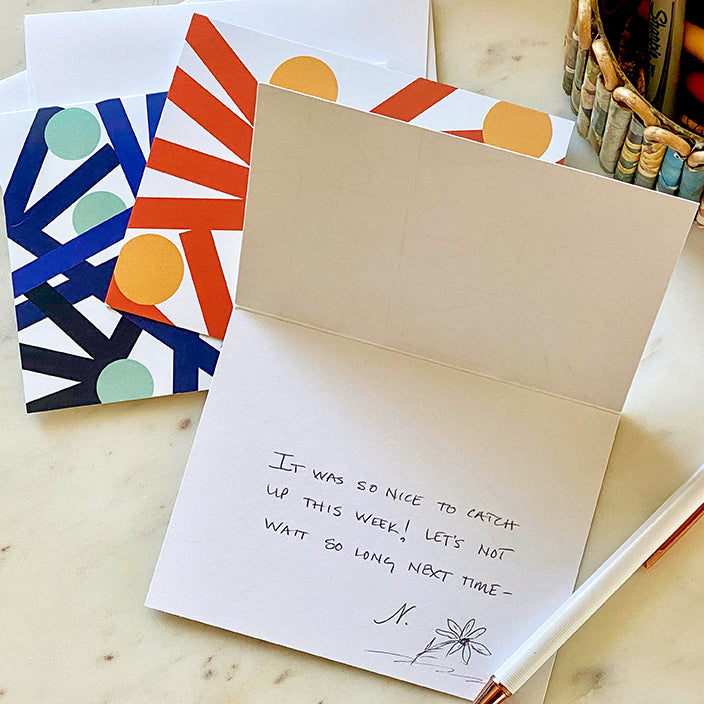 Sharpie
IT WAS SO NICE TO CATCH
UP THIS WEEK! LET'S NOT
WAIT SO LONG NEXT TIME-
N.